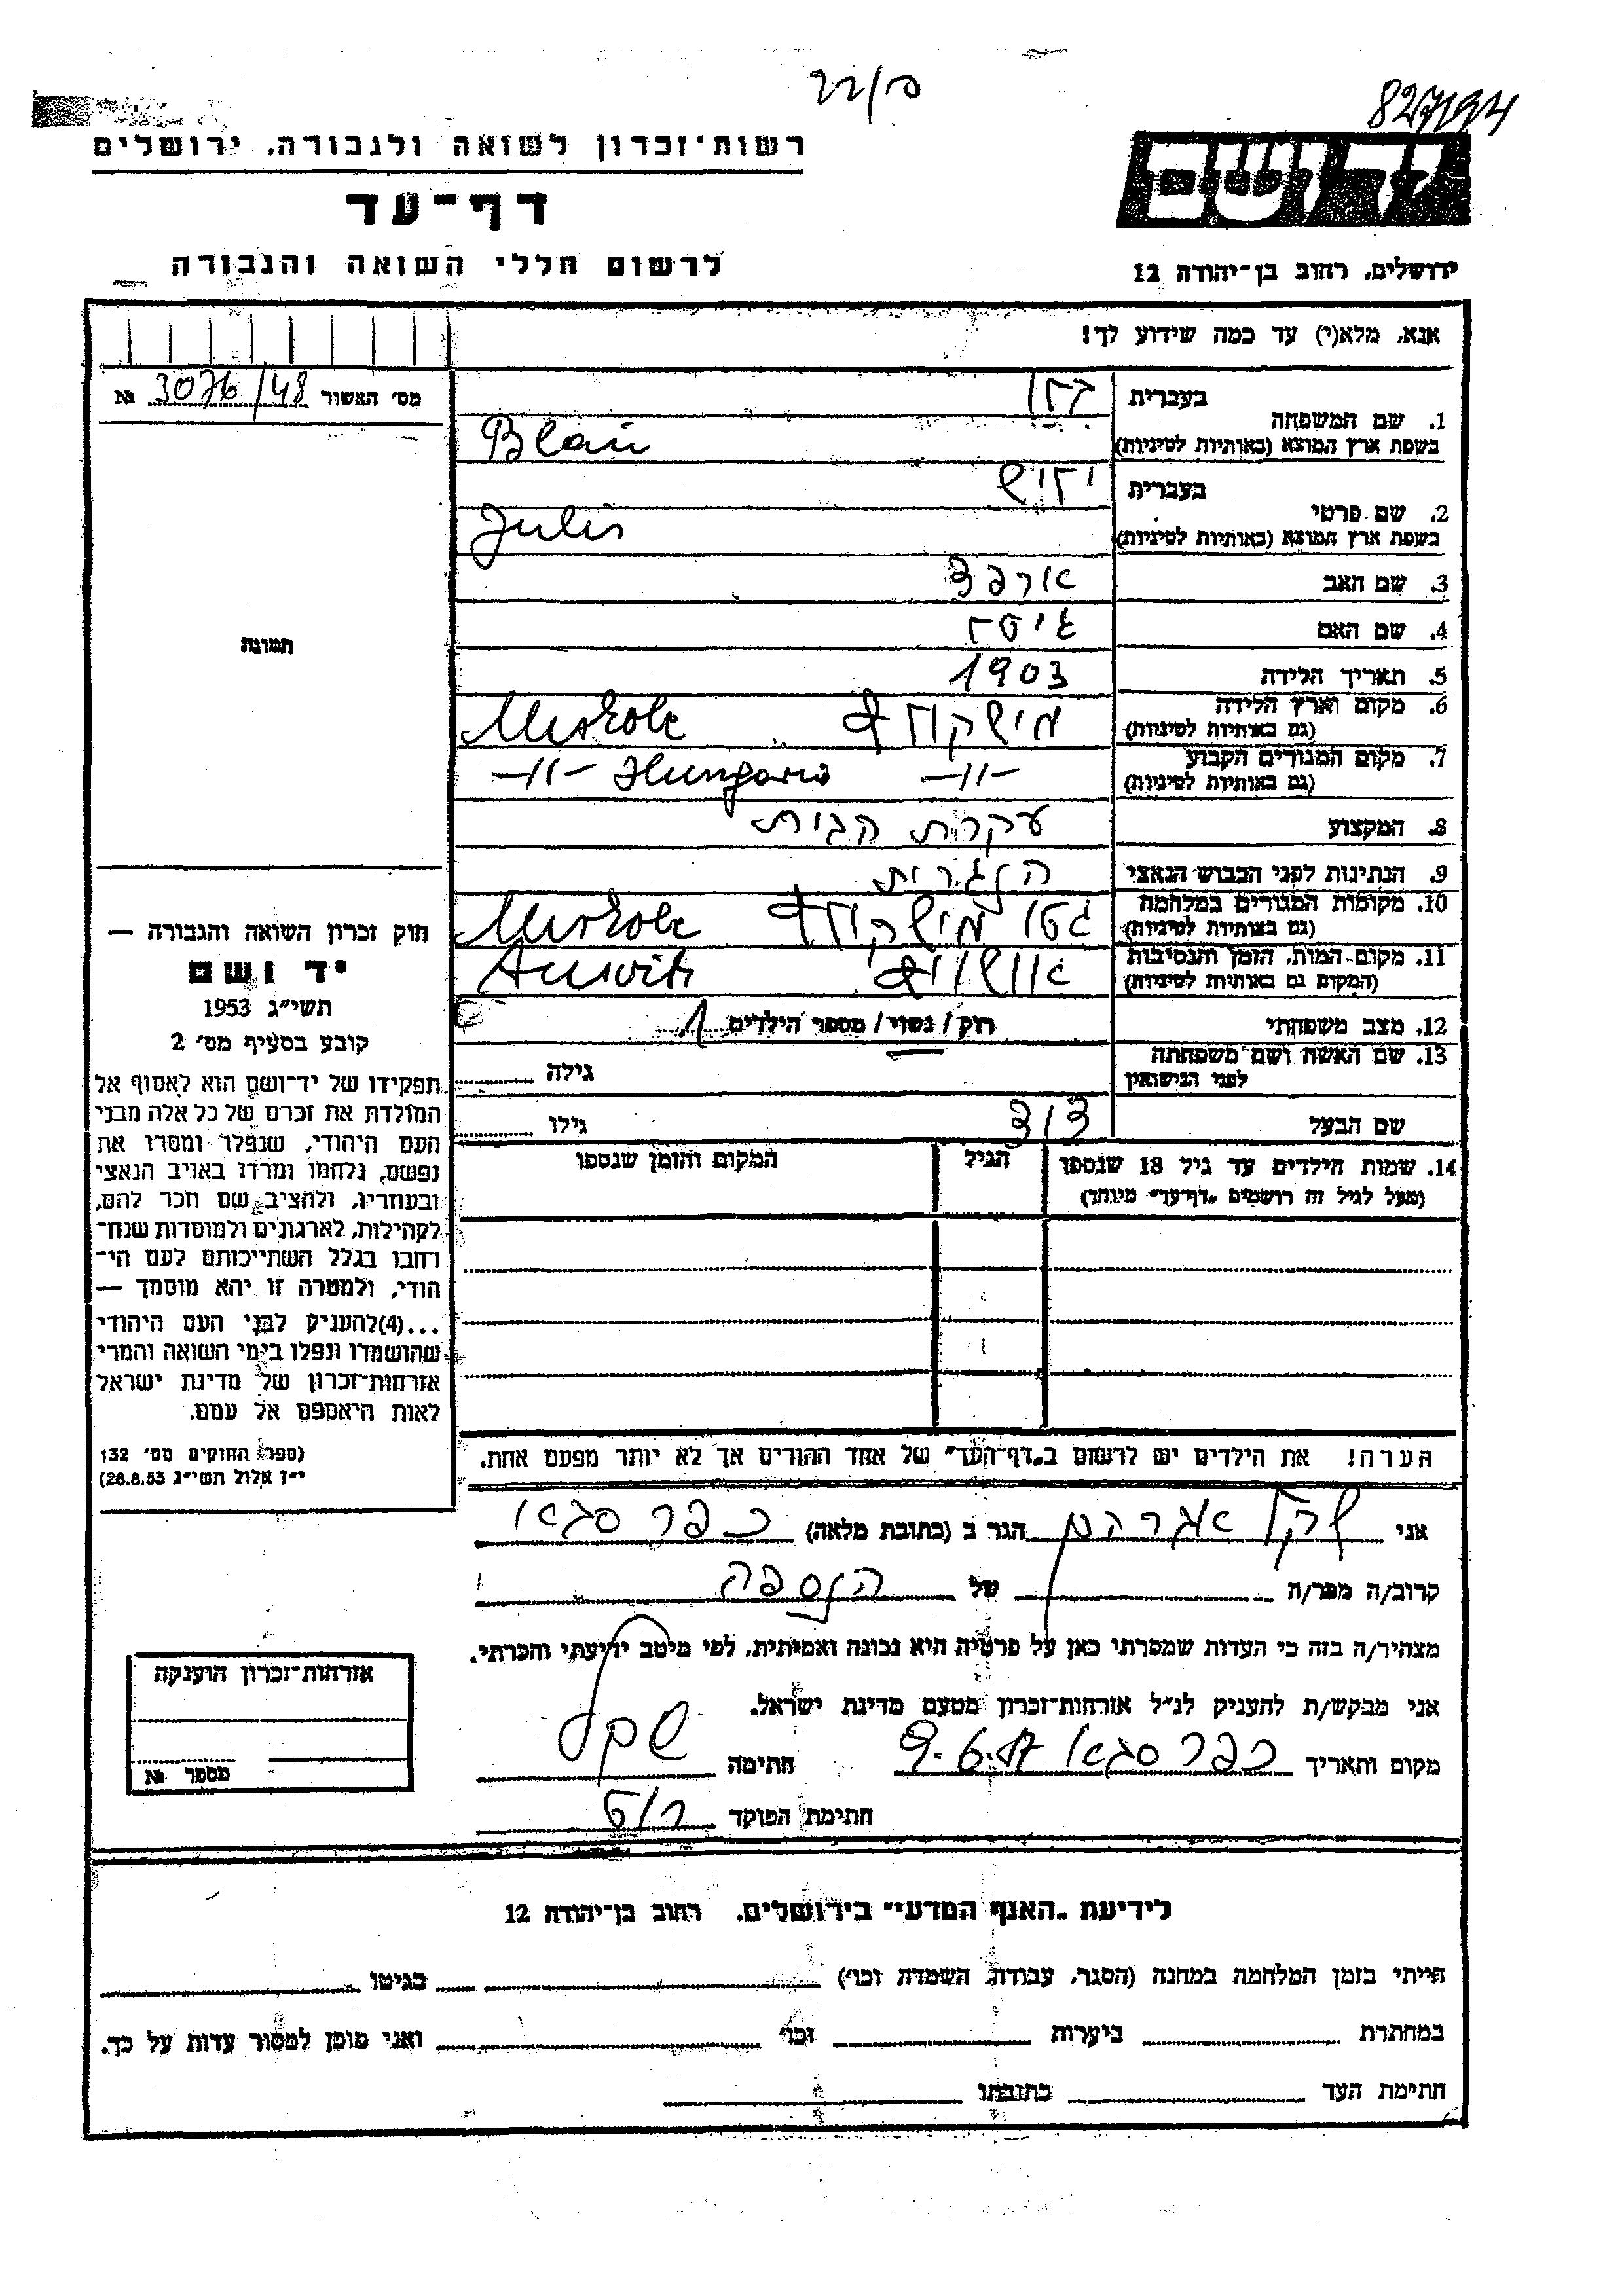 827194
רשות־זכרון לשואה ולגבורה, ירושלים
יד ושם
דף־עד
לרשום חללי השואה והגבורה
ירושלים, רחוב בן־יהודה 12
אנא, מלא(י) עד כמה שידוע לך!
מס׳ האשור 3076/48 №
1. שם המשפחה
בעברית
בשפת ארץ המוצא (באותיות לטיניות) Blau
2. שם פרטי
בעברית
בשפת ארץ המוצא (באותיות לטיניות)
3. שם האב ארפד
4. שם האם גיסל
5. תאריך הלידה 1903
6. מקום וארץ הלידה
(גם באותיות לטיניות) מישקולץ Miskolc
7. מקום המגורים הקבוע
(גם באותיות לטיניות) -״- -״- Hungaria
8. המקצוע עקרת הבית
9. הנתינות לפני הכבוש הנאצי הונגרית
10. מקומות המגורים במלחמה
(גם באותיות לטיניות) גטו מישקולץ Miskolc
11. מקום המות, הזמן והנסיבות
(המקום גם באותיות לטיניות) אושויץ Auswitz
12. מצב משפחתי רוק/נשוי/מספר הילדים 1
13. שם האשה ושם משפחתה
לפני הנישואין
גילה
שם הבעל
גילו
14. שמות הילדים עד גיל 18 שנספו
(מעל לגיל זה רושמים „דף־עד״ מיוחד)
הגיל
המקום והזמן שנספו
הערה! את הילדים יש לרשום ב„דף־העד״ של אחד ההורים אך לא יותר מפעם אחת.
תמונה
חוק זכרון השואה והגבורה —
יד ושם
תשי״ג 1953
קובע בסעיף מס׳ 2
תפקידו של יד־ושם הוא לאסוף אל
המולדת את זכרם של כל אלה מבני
העם היהודי, שנפלו ומסרו את
נפשם, נלחמו ומרדו באויב הנאצי
ובעוזריו, ולהציב שם וזכר להם,
לקהילות, לארגונים ולמוסדות שנח־
רבו בגלל השתייכותם לעם הי־
הודי, ולמטרה זו יהא מוסמך —
...(4) להעניק לבני העם היהודי
שהושמדו ונפלו בימי השואה והמרי
אזרחות־זכרון של מדינת ישראל
לאות היאספם אל עמם.
(ספר החוקים מס׳ 132
י״ז אלול תשי״ג 28.8.53)
אני שקל אברהם הגר ב (כתובת מלאה) כפר סבא
קרוב/ה מכר/ה של הנספה
מצהיר/ה בזה כי העדות שמסרתי כאן על פרטיה היא נכונה ואמיתית, לפי מיטב ידיעתי והכרתי.
אני מבקש/ת להעניק לנ״ל אזרחות־זכרון מטעם מדינת ישראל.
מקום ותאריך כפר סבא חתימה שקל
חתימת הפוקד
אזרחות־זכרון הוענקה
מספר №
לידיעת „האגף המדעי״ בירושלים, רחוב בן־יהודה 12
הייתי בזמן המלחמה במחנה (הסגר, עבודה, השמדה וכו׳) בגיטו
במחתרת ביערות וכו׳ ואני מוכן למסור עדות על כך.
חתימת העד כתובתו